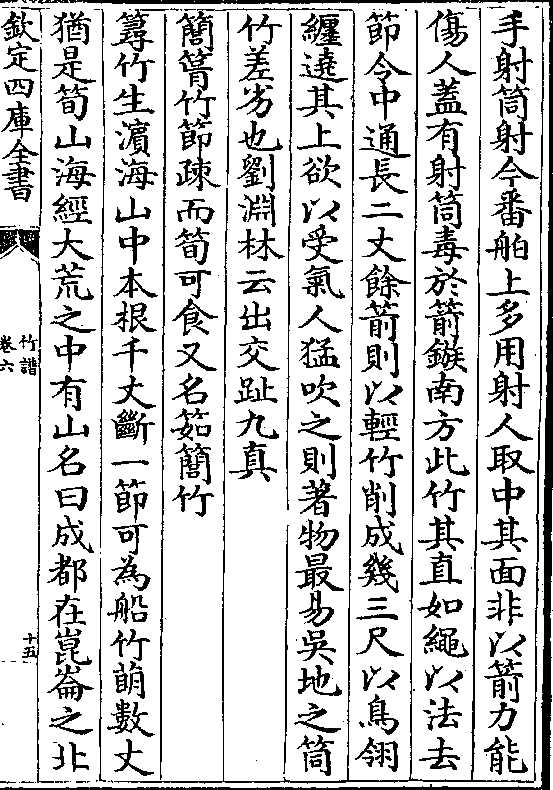 手射筒射今番舶上多用射人取中其面非以箭力能
傷人蓋有射筒毒於箭鏃南方此竹其直如繩以法去
節令中通長二丈餘箭則以輕竹削成幾三尺以鳥翎
纏遶其上欲以受氣人猛吹之則著物最易吳地之筒
竹差劣也劉淵林云出交趾九真
䉁䈏竹節疎而筍可食又名茹䉁竹
䉡竹生濵海山中本根千丈斷一節可為船竹萌數丈
猶是筍山海經大荒之中有山名曰成都在崑崙之北
欽定四庫全書
竹譜
卷六
十五